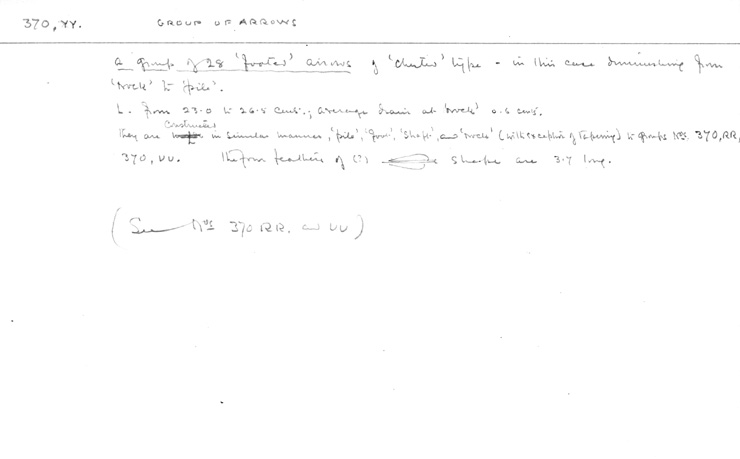 370, YY. GROUP OF ARROWS
a group of 28 'footed' arrows of 'chester' type - in this case diminishing from
'nock' to 'pile'.
L. from 23.0 to 26.5 cms.; average diam at 'nock' 0.6 cms.
Constructed
They are in similar manner, 'pile', 'shaft', and 'nock' (with exception of tapering) to groups Nos. 370, RR,
370, UU. The four feathers of (?) shape are 3.7 long.
(See Nos 370 RR. and UU)